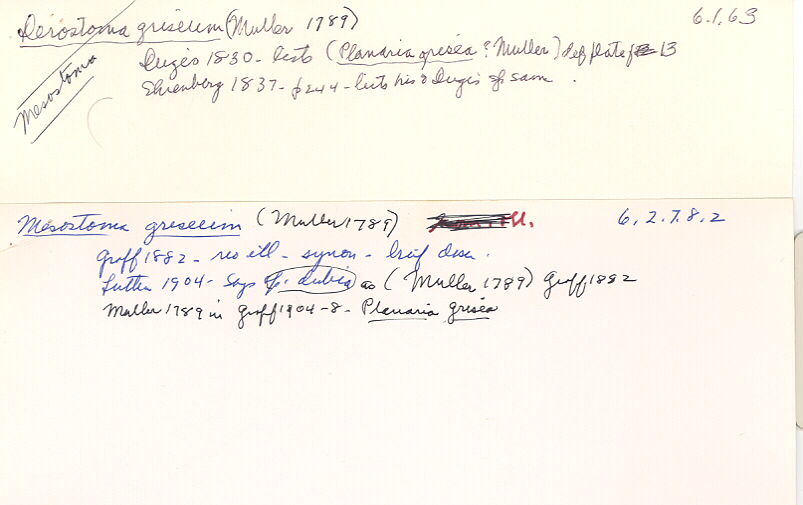 Derostoma griseum (Muller 1789) 6.1.63
Mesostoma
Duges 1830 - lists (Planaria grisea ? Muller) def plate 13
Ehrenberg 1837 - p244 - lists his & Duges sp. sam .
Mesostoma griseum (Muller 1789) Ill. 6, 2.7.8.2
Graff 1882 - no ill - synon - brief desc .
Luther 1904 - Says sp. dubia as (Muller 1789) Graff 1882
Muller 1789 in Graff 1904-8 - Planaria grisea